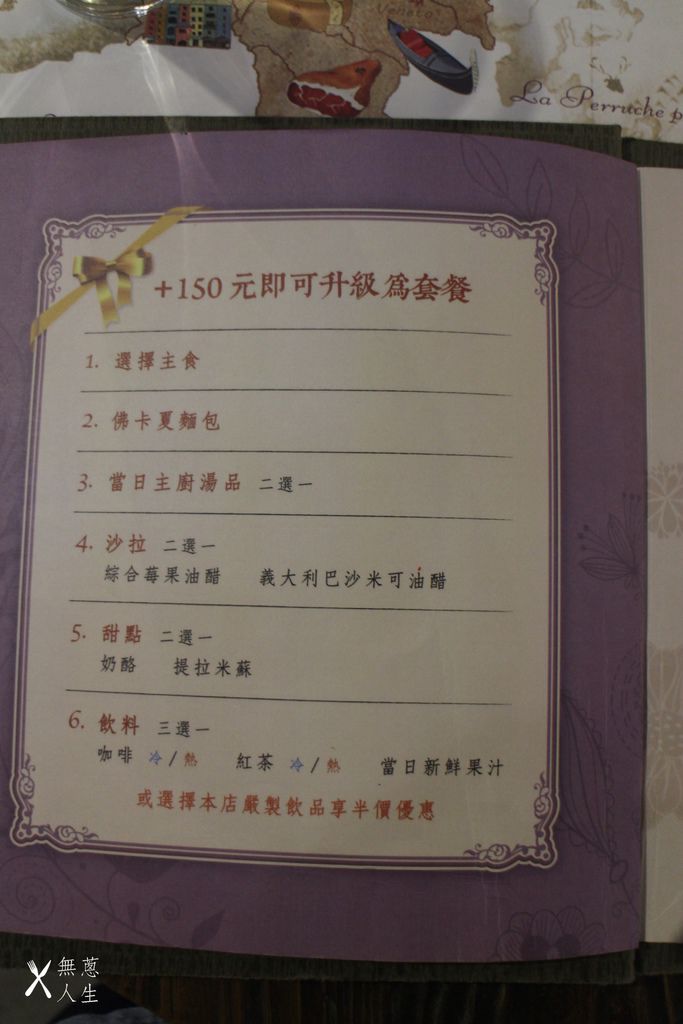 Veneto
La Perruche p
+150 元即可升級為套餐
1. 選擇主食
2. 佛卡夏麵包
3. 當日主廚湯品 二選一
4. 沙拉 二選一
綜合莓果油醋 義大利巴沙米可油醋
5. 甜點 二選一
奶酪 提拉米蘇
6. 飲料 三選一
咖啡 冷/熱 紅茶 冷/熱 當日新鮮果汁
或選擇本店嚴製飲品享半價優惠
無蔥
人生